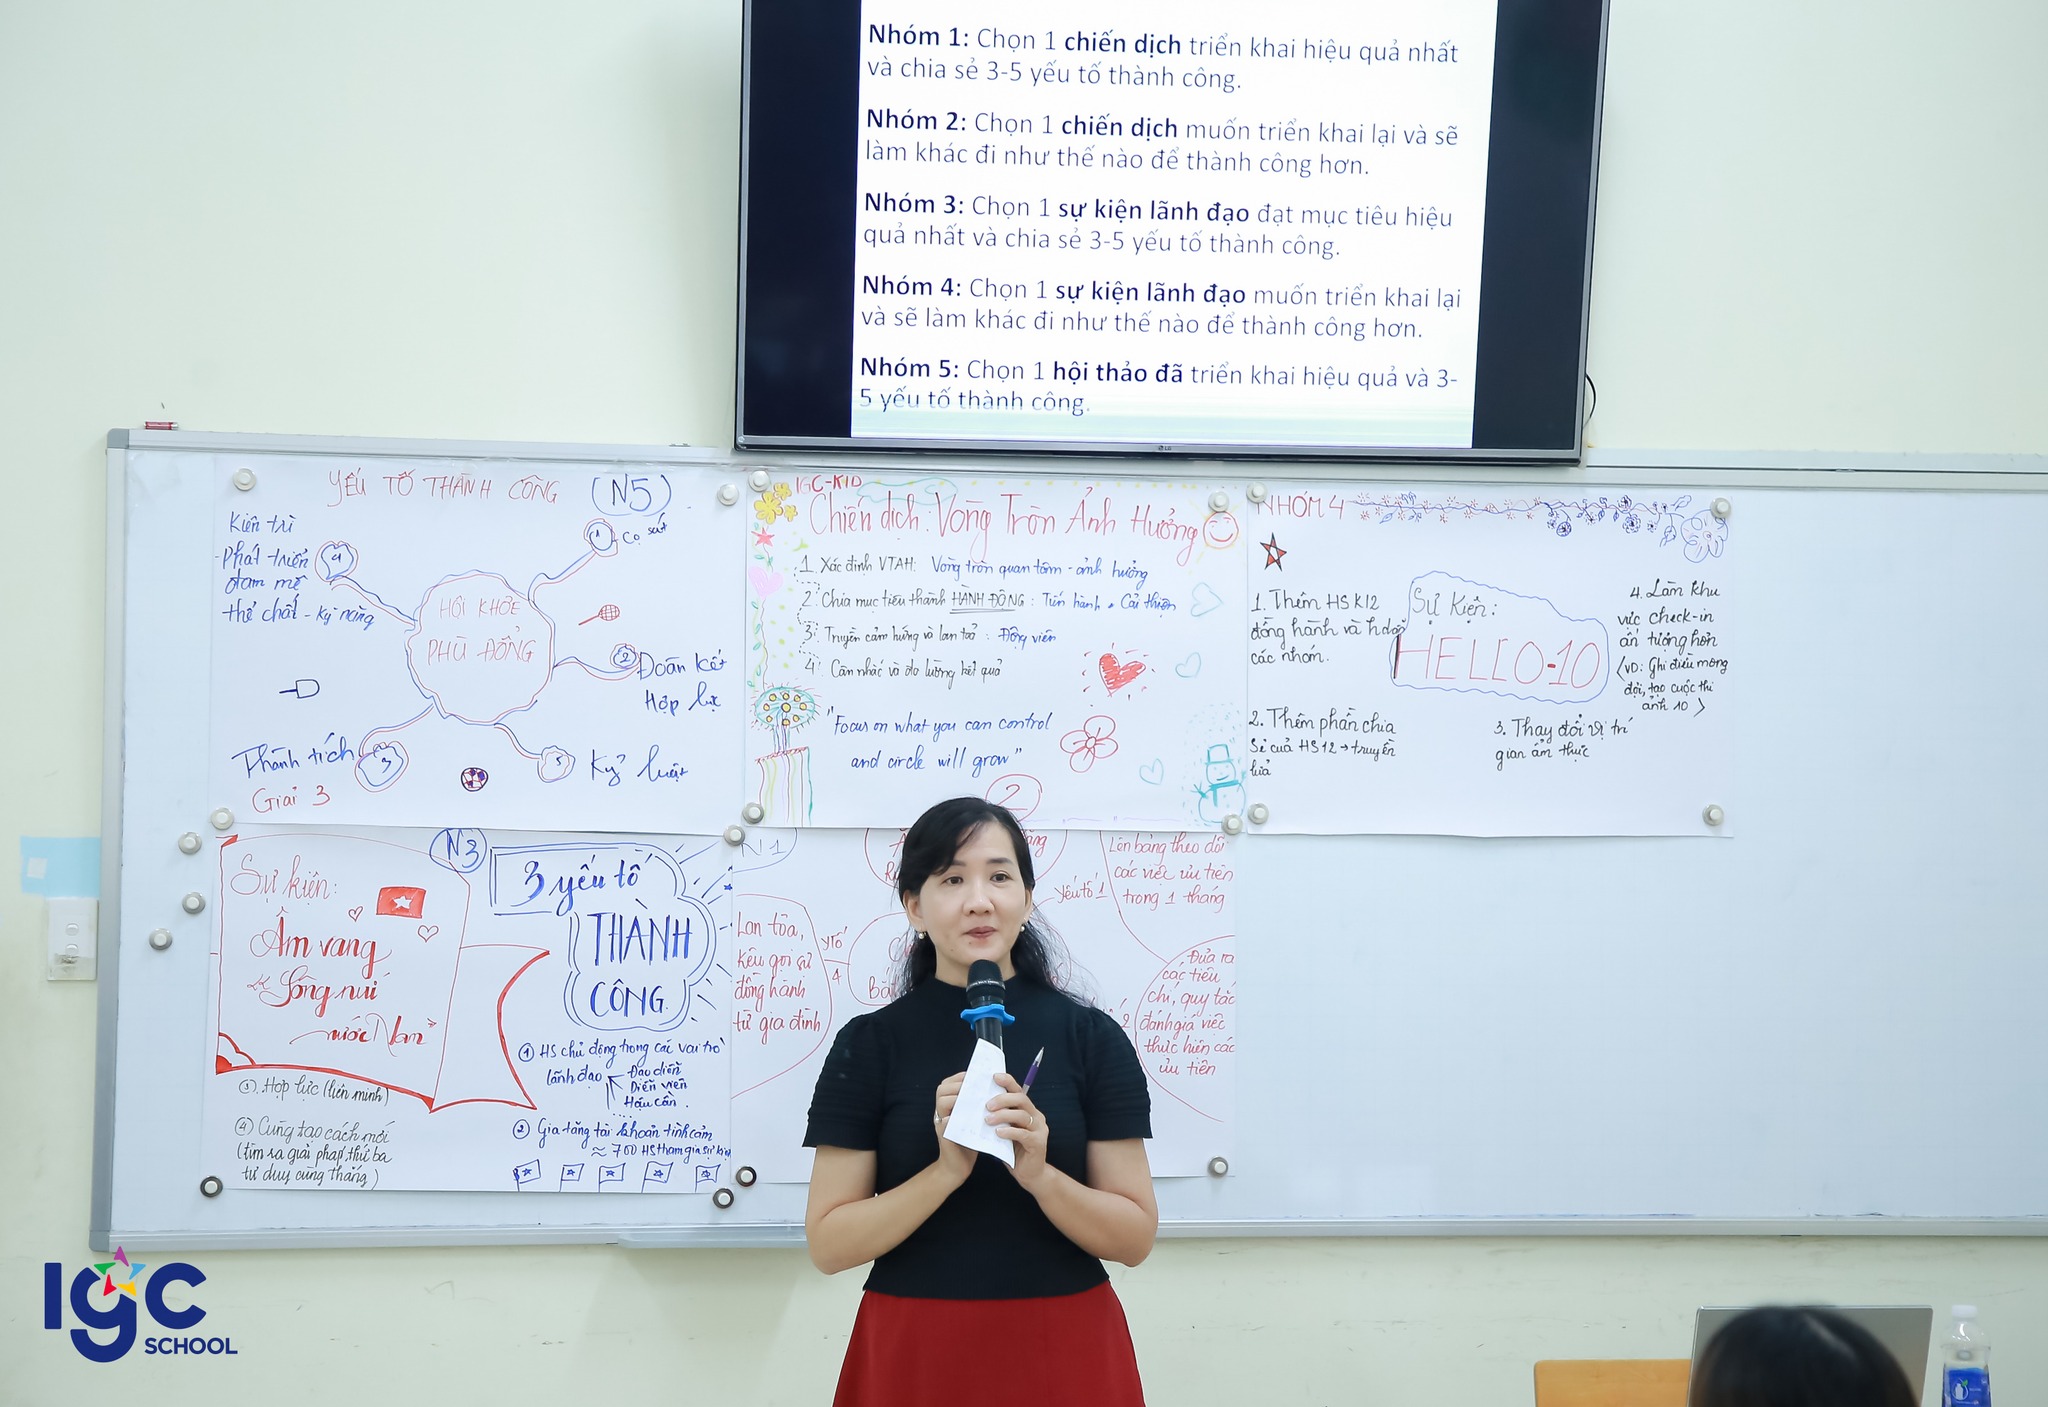 Nhóm 1: Chọn 1 chiến dịch triển khai hiệu quả nhất
và chia sẻ 3-5 yếu tố thành công.
Nhóm 2: Chọn 1 chiến dịch muốn triển khai lại và sẽ
làm khác đi như thế nào để thành công hơn.
Nhóm 3: Chọn 1 sự kiện lãnh đạo đạt mục tiêu hiệu
quả nhất và chia sẻ 3-5 yếu tố thành công.
Nhóm 4: Chọn 1 sự kiện lãnh đạo muốn triển khai lại
và sẽ làm khác đi như thế nào để thành công hơn.
Nhóm 5: Chọn 1 hội thảo đã triển khai hiệu quả và 3-
5 yếu tố thành công.
LG
YẾU TỐ THÀNH CÔNG (N5)
HỘI KHỎE
PHÙ ĐỔNG
1 Cọ sát
2 Đoàn kết
Hợp lực
5 Kỷ luật
3 Thành tích
Giải 3
4
Kiên trì
- Phát triển
đam mê
thể chất - kỹ năng
IGC-KID
Chiến dịch: Vòng Tròn Ảnh Hưởng
1. Xác định VTAH: Vòng tròn quan tâm - ảnh hưởng
2. Chia mục tiêu thành HÀNH ĐỘNG: Tiến hành + Cải thiện
3. Truyền cảm hứng và lan toả: Động viên
4. Cân nhắc và đo lường kết quả
"Focus on what you can control
and circle will grow"
NHÓM 4
Sự Kiện:
HELLO-10
1. Thêm HS K12
đồng hành và h.dẫn
các nhóm.
2. Thêm phần chia
sẻ của HS12 → truyền
lửa
3. Thay đổi vị trí
gian ẩm thực
4. Làm khu
vực check-in
ấn tượng hơn
(VD: Ghi điều mong
đợi, tạo cuộc thi
ảnh 10)
N3
Sự kiện:
Âm vang
"Sông núi
nước Nam"
3 yếu tố
THÀNH
CÔNG
① HS chủ động trong các vai trò
lãnh đạo
Đạo diễn
Diễn viên
Hậu cần
② Gia tăng tài khoản tình cảm
≈ 700 HS tham gia sự kiện
③. Hợp lực (liên minh)
④ Cùng tạo cách mới
(tìm ra giải pháp thứ ba
tư duy cùng thắng)
N1
2
yếu tố 1
Lên bảng theo dõi
các việc ưu tiên
trong 1 tháng
Đưa ra
các tiêu
chí, quy tắc
đánh giá việc
thực hiện các
ưu tiên
ytố
4
Lan tỏa,
kêu gọi sự
đồng hành
từ gia đình
IGC
SCHOOL